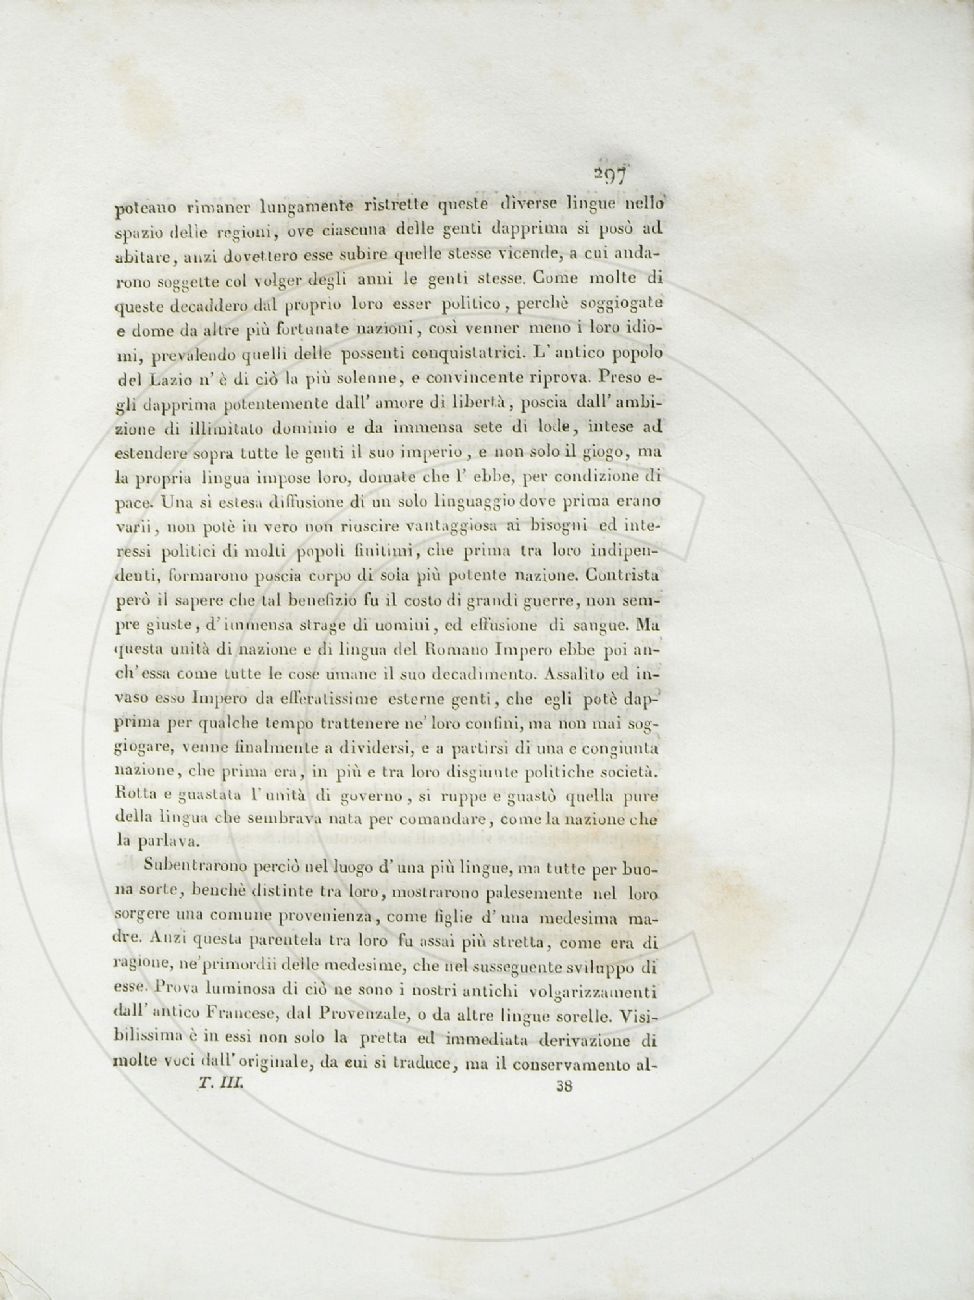 297
poteano rimaner lungamente ristrette queste diverse lingue nello
spazio delle regioni, ove ciascuna delle genti dapprima si posò ad
abitare, anzi dovettero esse subire quelle stesse vicende, a cui anda-
rono soggette col volger degli anni le genti stesse. Come molte di
queste decaddero dal proprio loro esser politico, perchè soggiogate
e dome da altre più fortunate nazioni, così venner meno i loro idio-
mi, prevalendo quelli delle possenti conquistatrici. L' antico popolo
del Lazio n' è di ciò la più solenne, e convincente riprova. Preso e-
gli dapprima potentemente dall' amore di libertà, poscia dall' ambi-
zione di illimitato dominio e da immensa sete di lode, intese ad
estendere sopra tutte le genti il suo imperio, e non solo il giogo, ma
la propria lingua impose loro, domate che l' ebbe, per condizione di
pace. Una sì estesa diffusione di un solo linguaggio dove prima erano
varii, non potè in vero non riuscire vantaggiosa ai bisogni ed inte-
ressi politici di molti popoli finitimi, che prima tra loro indipen-
denti, formarono poscia corpo di sola più potente nazione. Contrista
però il sapere che tal benefizio fu il costo di grandi guerre, non sem-
pre giuste, d' immensa strage di uomini, ed effusione di sangue. Ma
questa unità di nazione e di lingua del Romano Impero ebbe poi an-
ch' essa come tutte le cose umane il suo decadimento. Assalito ed in-
vaso esso Impero da efferatissime esterne genti, che egli potè dap-
prima per qualche tempo trattenere ne' loro confini, ma non mai sog-
giogare, venne finalmente a dividersi, e a partirsi di una e congiunta
nazione, che prima era, in più e tra loro disgiunte politiche società.
Rotta e guastata l' unità di governo, si ruppe e guastò quella pure
della lingua che sembrava nata per comandare, come la nazione che
la parlava.
Subentrarono perciò nel luogo d' una più lingue, ma tutte per buo-
na sorte, benchè distinte tra loro, mostrarono palesemente nel loro
sorgere una comune provenienza, come figlie d' una medesima ma-
dre. Anzi questa parentela tra loro fu assai più stretta, come era di
ragione, ne' primordii delle medesime, che nel susseguente sviluppo di
esse. Prova luminosa di ciò ne sono i nostri antichi volgarizzamenti
dall' antico Francese, dal Provenzale, o da altre lingue sorelle. Visi-
bilissima è in essi non solo la pretta ed immediata derivazione di
molte voci dall' originale, da cui si traduce, ma il conservamento al-
T. III. 38